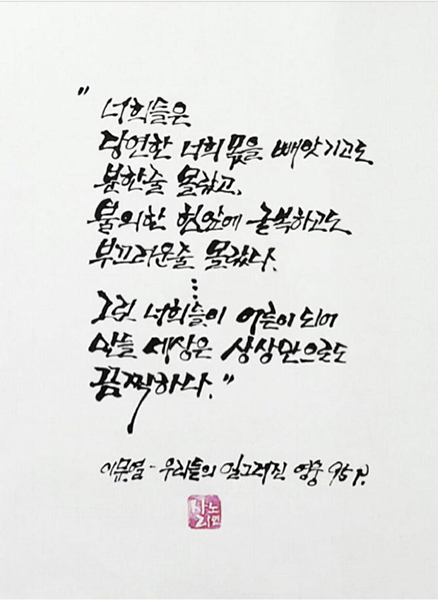 "
너희들은
당연한 너희 몫을 빼앗기고도
분한줄 몰랐고,
불의한 힘앞에 굴복하고도
부끄러운줄 몰랐다.
⋮
그런 너희들이 어른이 되어
만들 세상은 상상만으로도
끔찍하다."
이문열 - 우리들의 일그러진 영웅 95P.